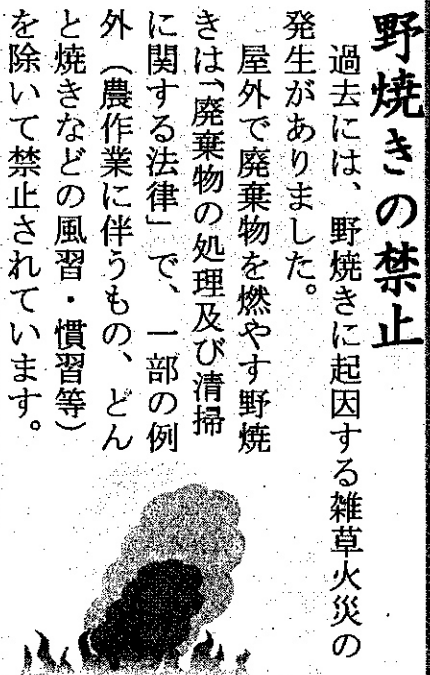 野焼きの禁止
過去には、野焼きに起因する雑草火災の
発生がありました。
屋外で廃棄物を燃やす野焼
きは「廃棄物の処理及び清掃
に関する法律」で、一部の例
外（農作業に伴うもの、どん
と焼きなどの風習・慣習等）
を除いて禁止されています。